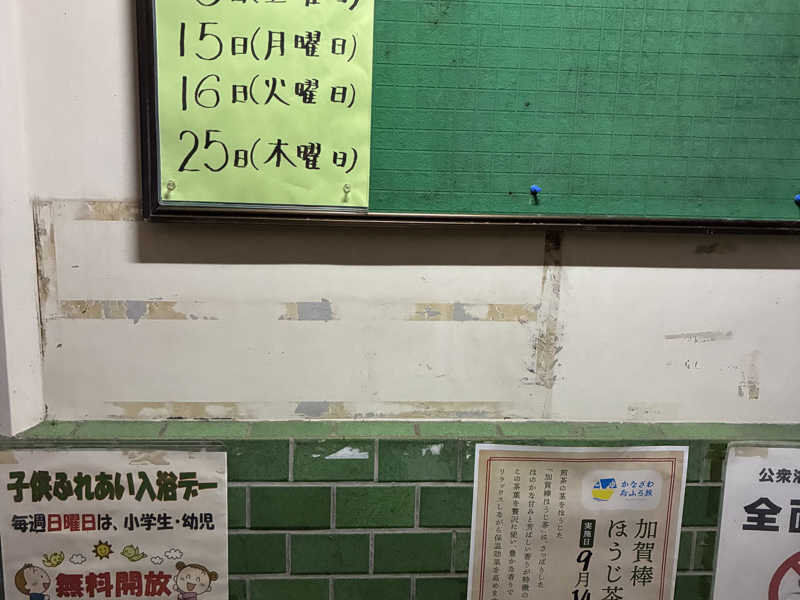 15日(月曜日)
16日(火曜日)
25日(木曜日)
子供ふれあい入浴デー
毎週日曜日は、小学生・幼児
無料開放
かなざわ
おふろ旅
加賀棒
ほうじ茶
実施日
9月14
煎茶の茎をほうじた
「加賀棒ほうじ茶」は、さっぱりした
ほのかな甘みと芳ばしい香りが特徴の
この茶葉を贅沢に使い 豊かな香りで
リラックスしながら保温効果を高めま
公衆
全面